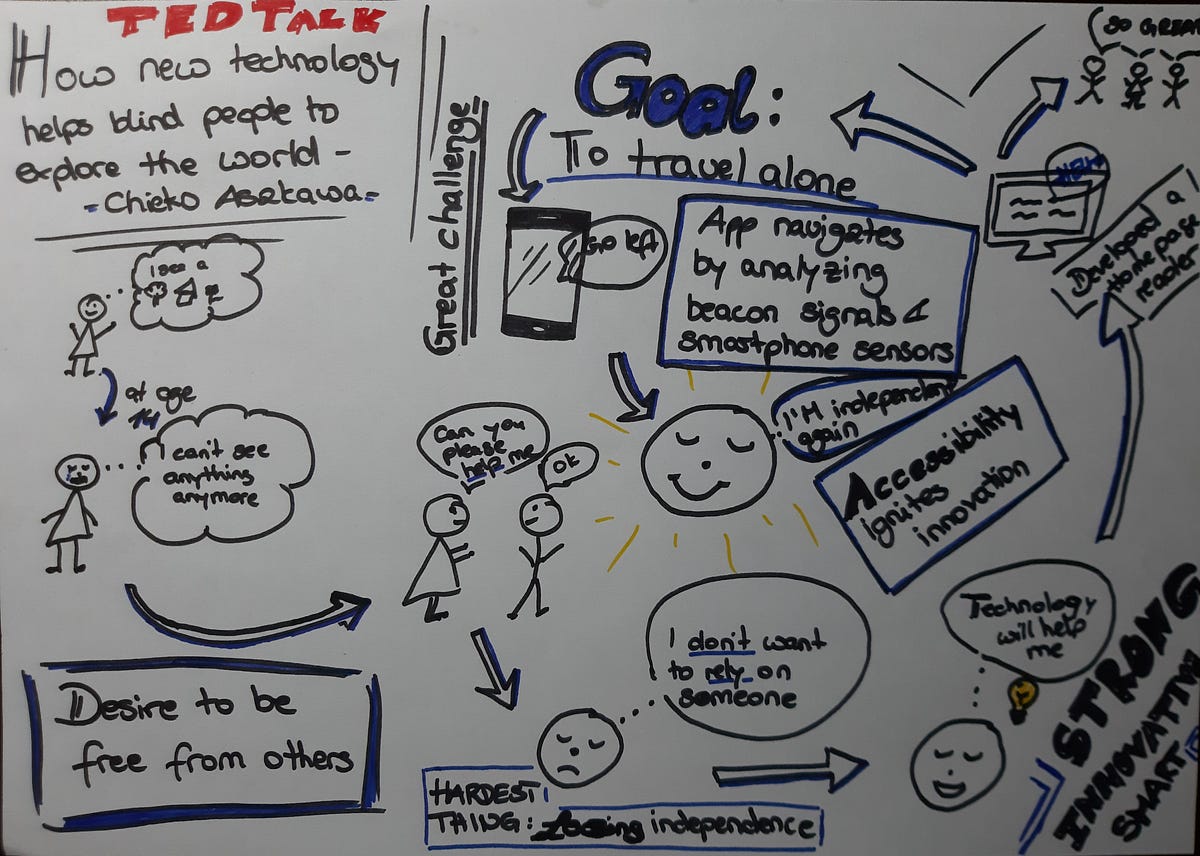 TED TALK
How new technology
helps blind people to
explore the world -
- Chieko Asakawa -
I see a
at age
14
I can't see
anything
anymore
Desire to be
free from others
Can you
please
help me
ok
HARDEST
THING: Loosing independence
I don't want
to rely on
someone
Technology
will help
me
STRONG
INNOVATIVE
SMART
Developed a
Homepage
reader
SO GREAT
Goal:
To travel alone
Great challenge
Go left
App navigates
by analyzing
beacon signals &
smartphone sensors
I'M independent
again
Accessibility
ignites
innovation